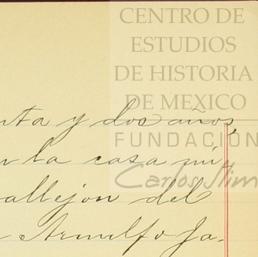 CENTRO DE
ESTUDIOS
DE HISTORIA
DE MEXICO
FUNDACIÓN
Carlos Slim
nta y dos años,
n la casa nú
allejón del
Arnulfo Ja-